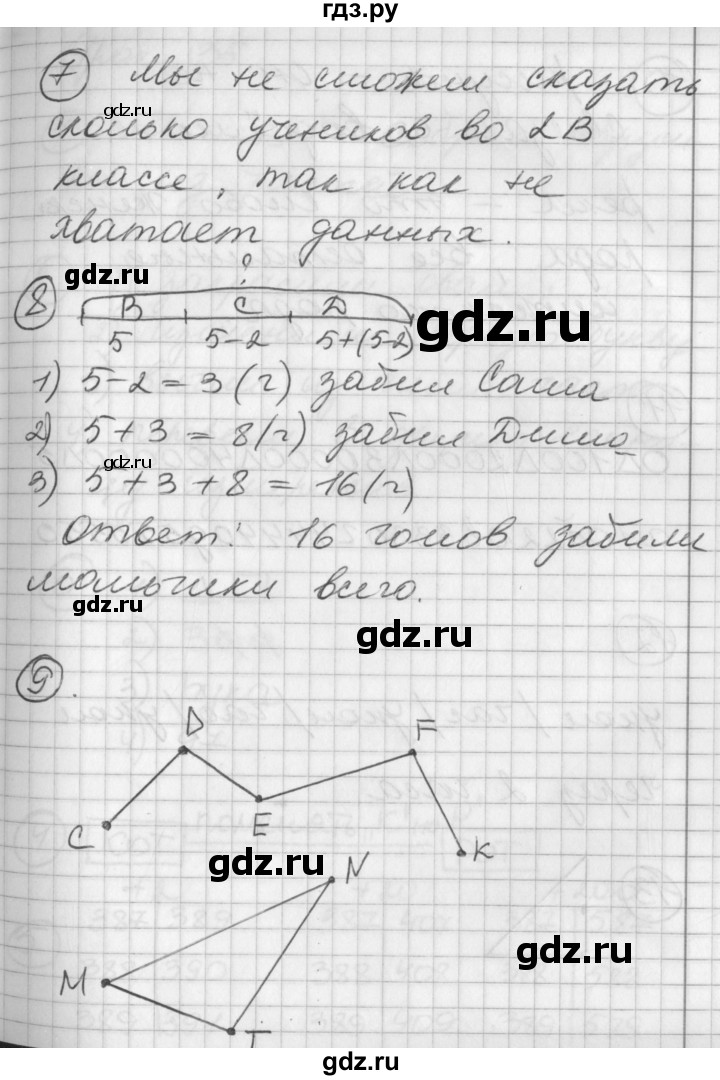 гдз.ру
7 Мы не сможем сказать
gdz.ru
сколько учеников во 2В
классе, так как не
хватает данных.
gdz.ru
?
8 В С D
gdz.ru
5 5-2 5+(5-2)
1) 5-2=3(г) забил Саша
2) 5+3=8(г) забил Дима
gdz.ru
3) 5+3+8=16(г)
Ответ: 16 голов забили
мальчики всего.
gdz.ru
gdz.ru
9.
D F
C E K
gdz.ru
N
gdz.ru
M
T
gdz.ru